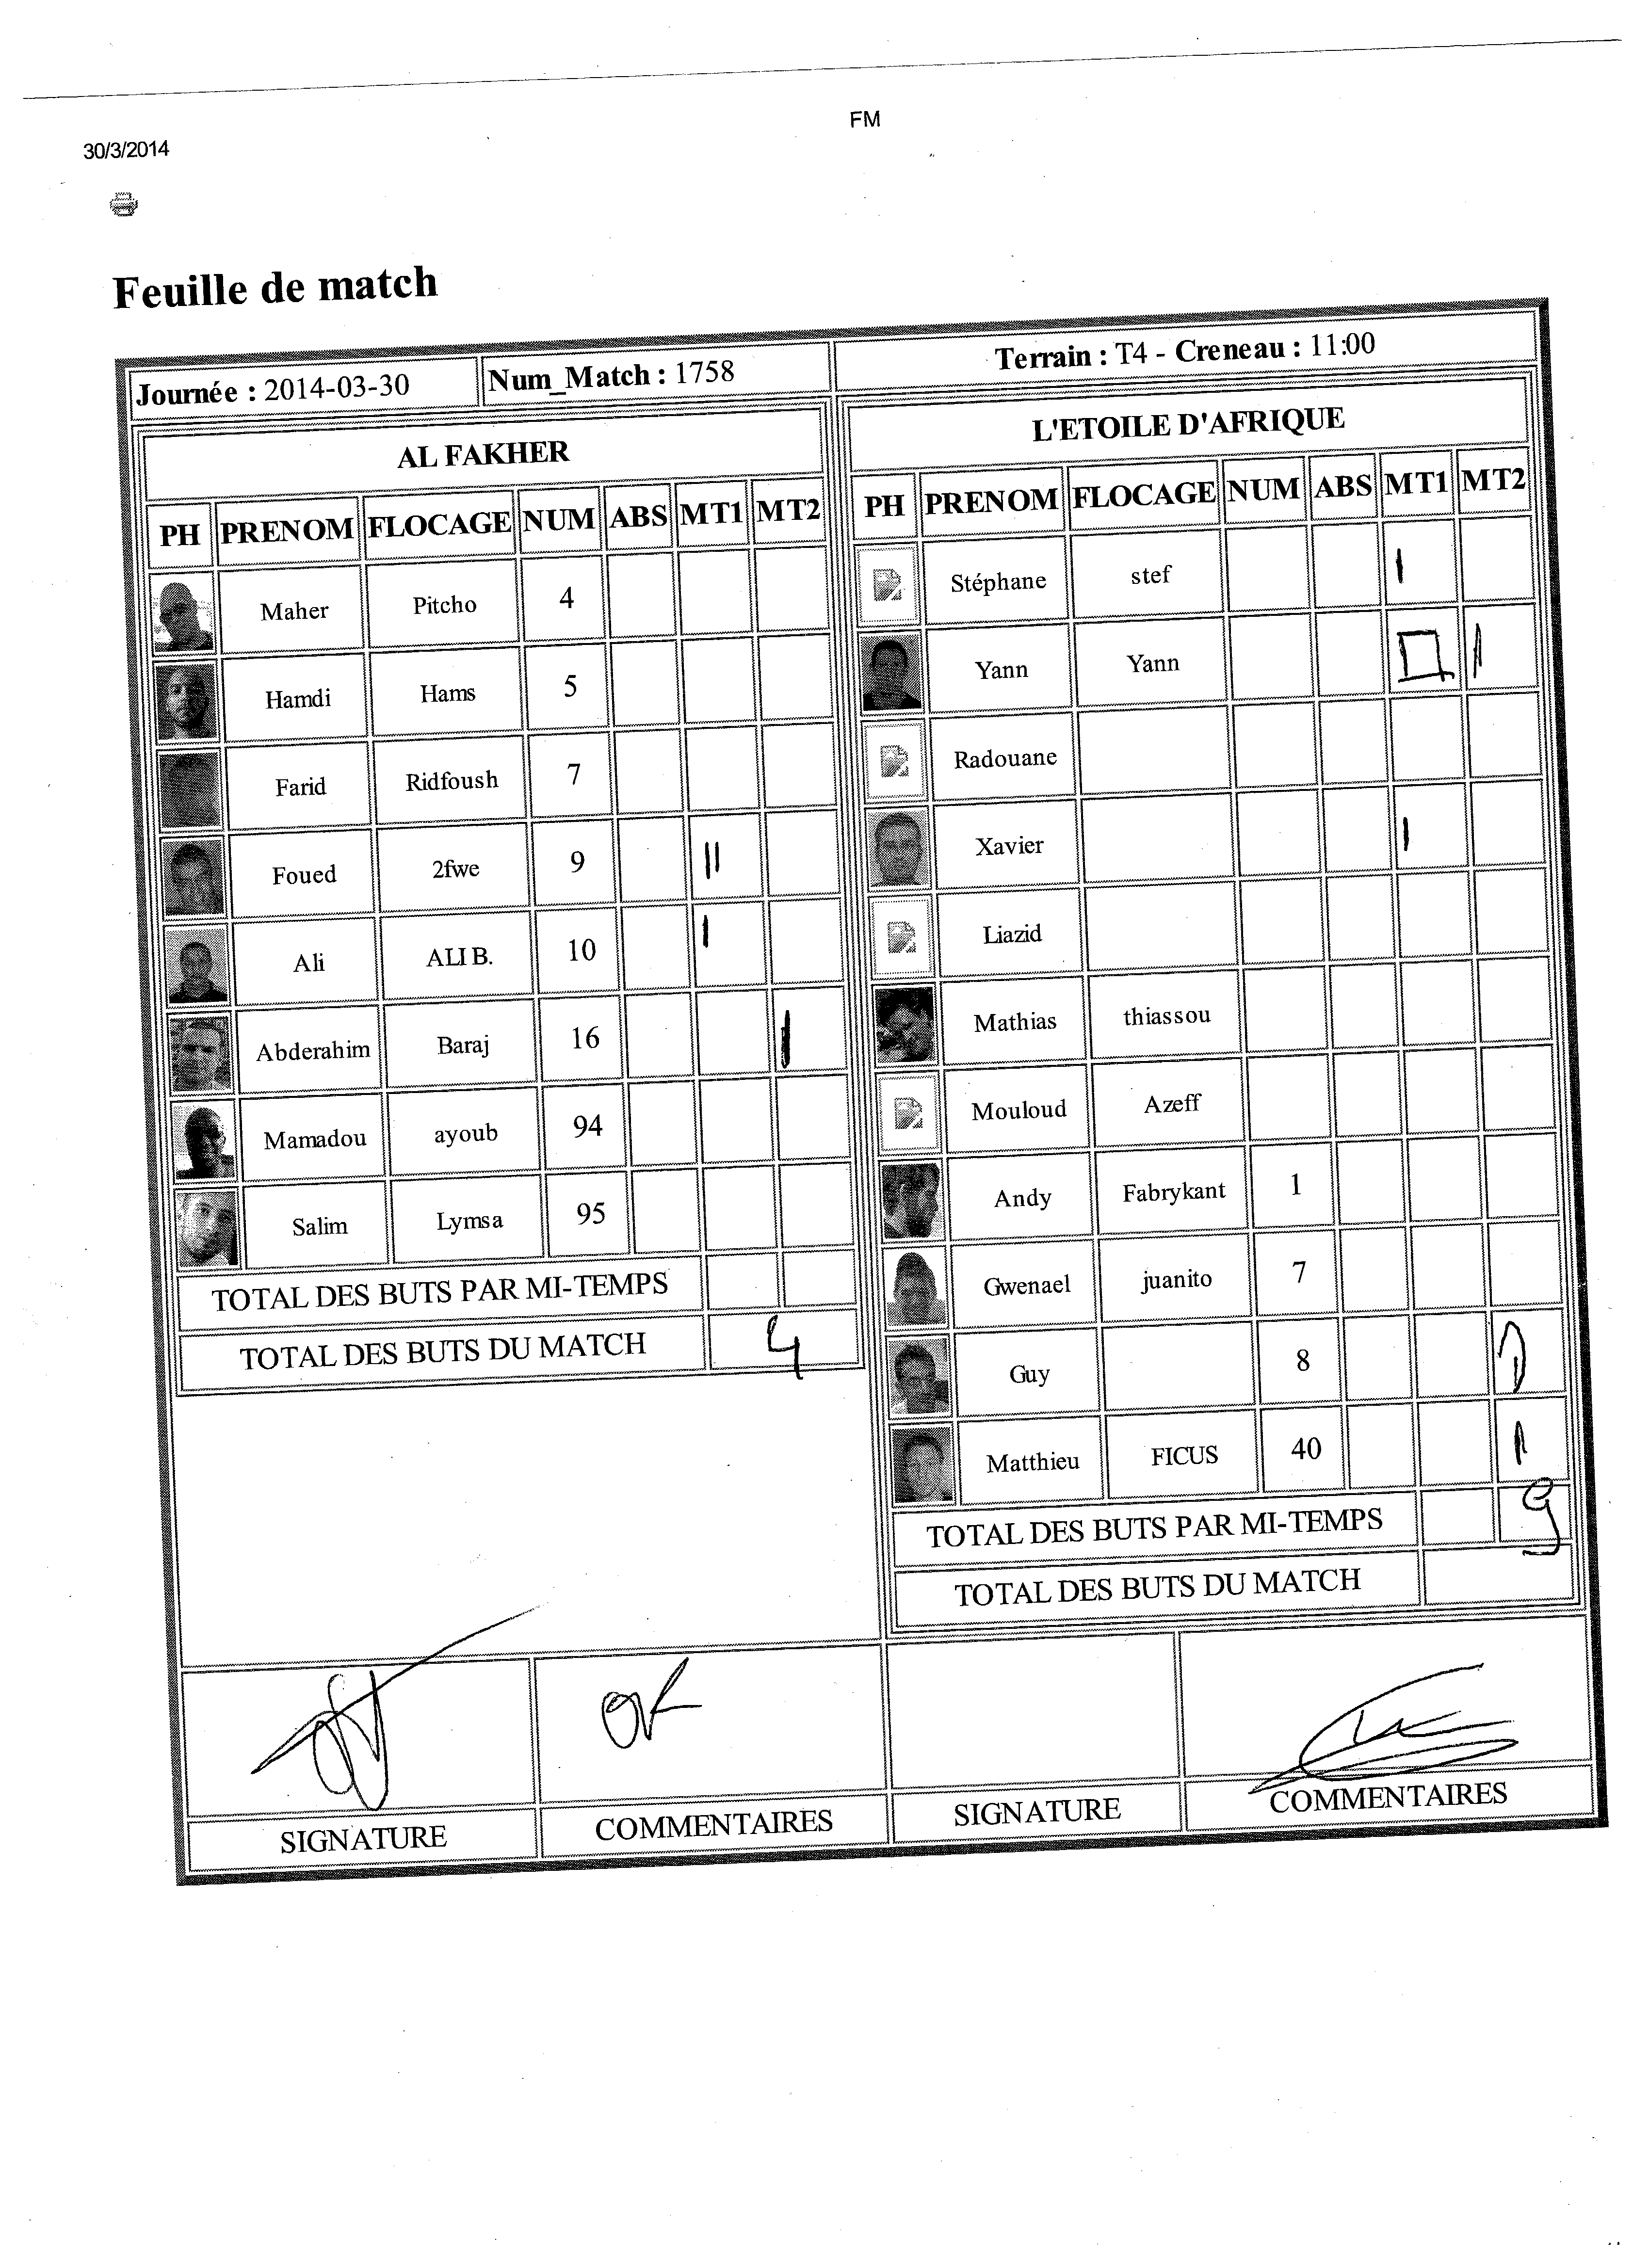 FM
30/3/2014
Feuille de match
Journée : 2014-03-30 Num_Match : 1758 Terrain : T4 - Creneau : 11:00
AL FAKHER
PH PRENOM FLOCAGE NUM ABS MT1 MT2
Maher Pitcho 4
Hamdi Hams 5
Farid Ridfoush 7
Foued 2fwe 9 ||
Ali ALI B. 10 |
Abderahim Baraj 16 |
Mamadou ayoub 94
Salim Lymsa 95
TOTAL DES BUTS PAR MI-TEMPS
TOTAL DES BUTS DU MATCH 4
L'ETOILE D'AFRIQUE
PH PRENOM FLOCAGE NUM ABS MT1 MT2
Stéphane stef |
Yann Yann |
Radouane
Xavier |
Liazid
Mathias thiassou
Mouloud Azeff
Andy Fabrykant 1
Gwenael juanito 7
Guy 8
Matthieu FICUS 40 |
TOTAL DES BUTS PAR MI-TEMPS 9
TOTAL DES BUTS DU MATCH
OK
SIGNATURE COMMENTAIRES SIGNATURE COMMENTAIRES